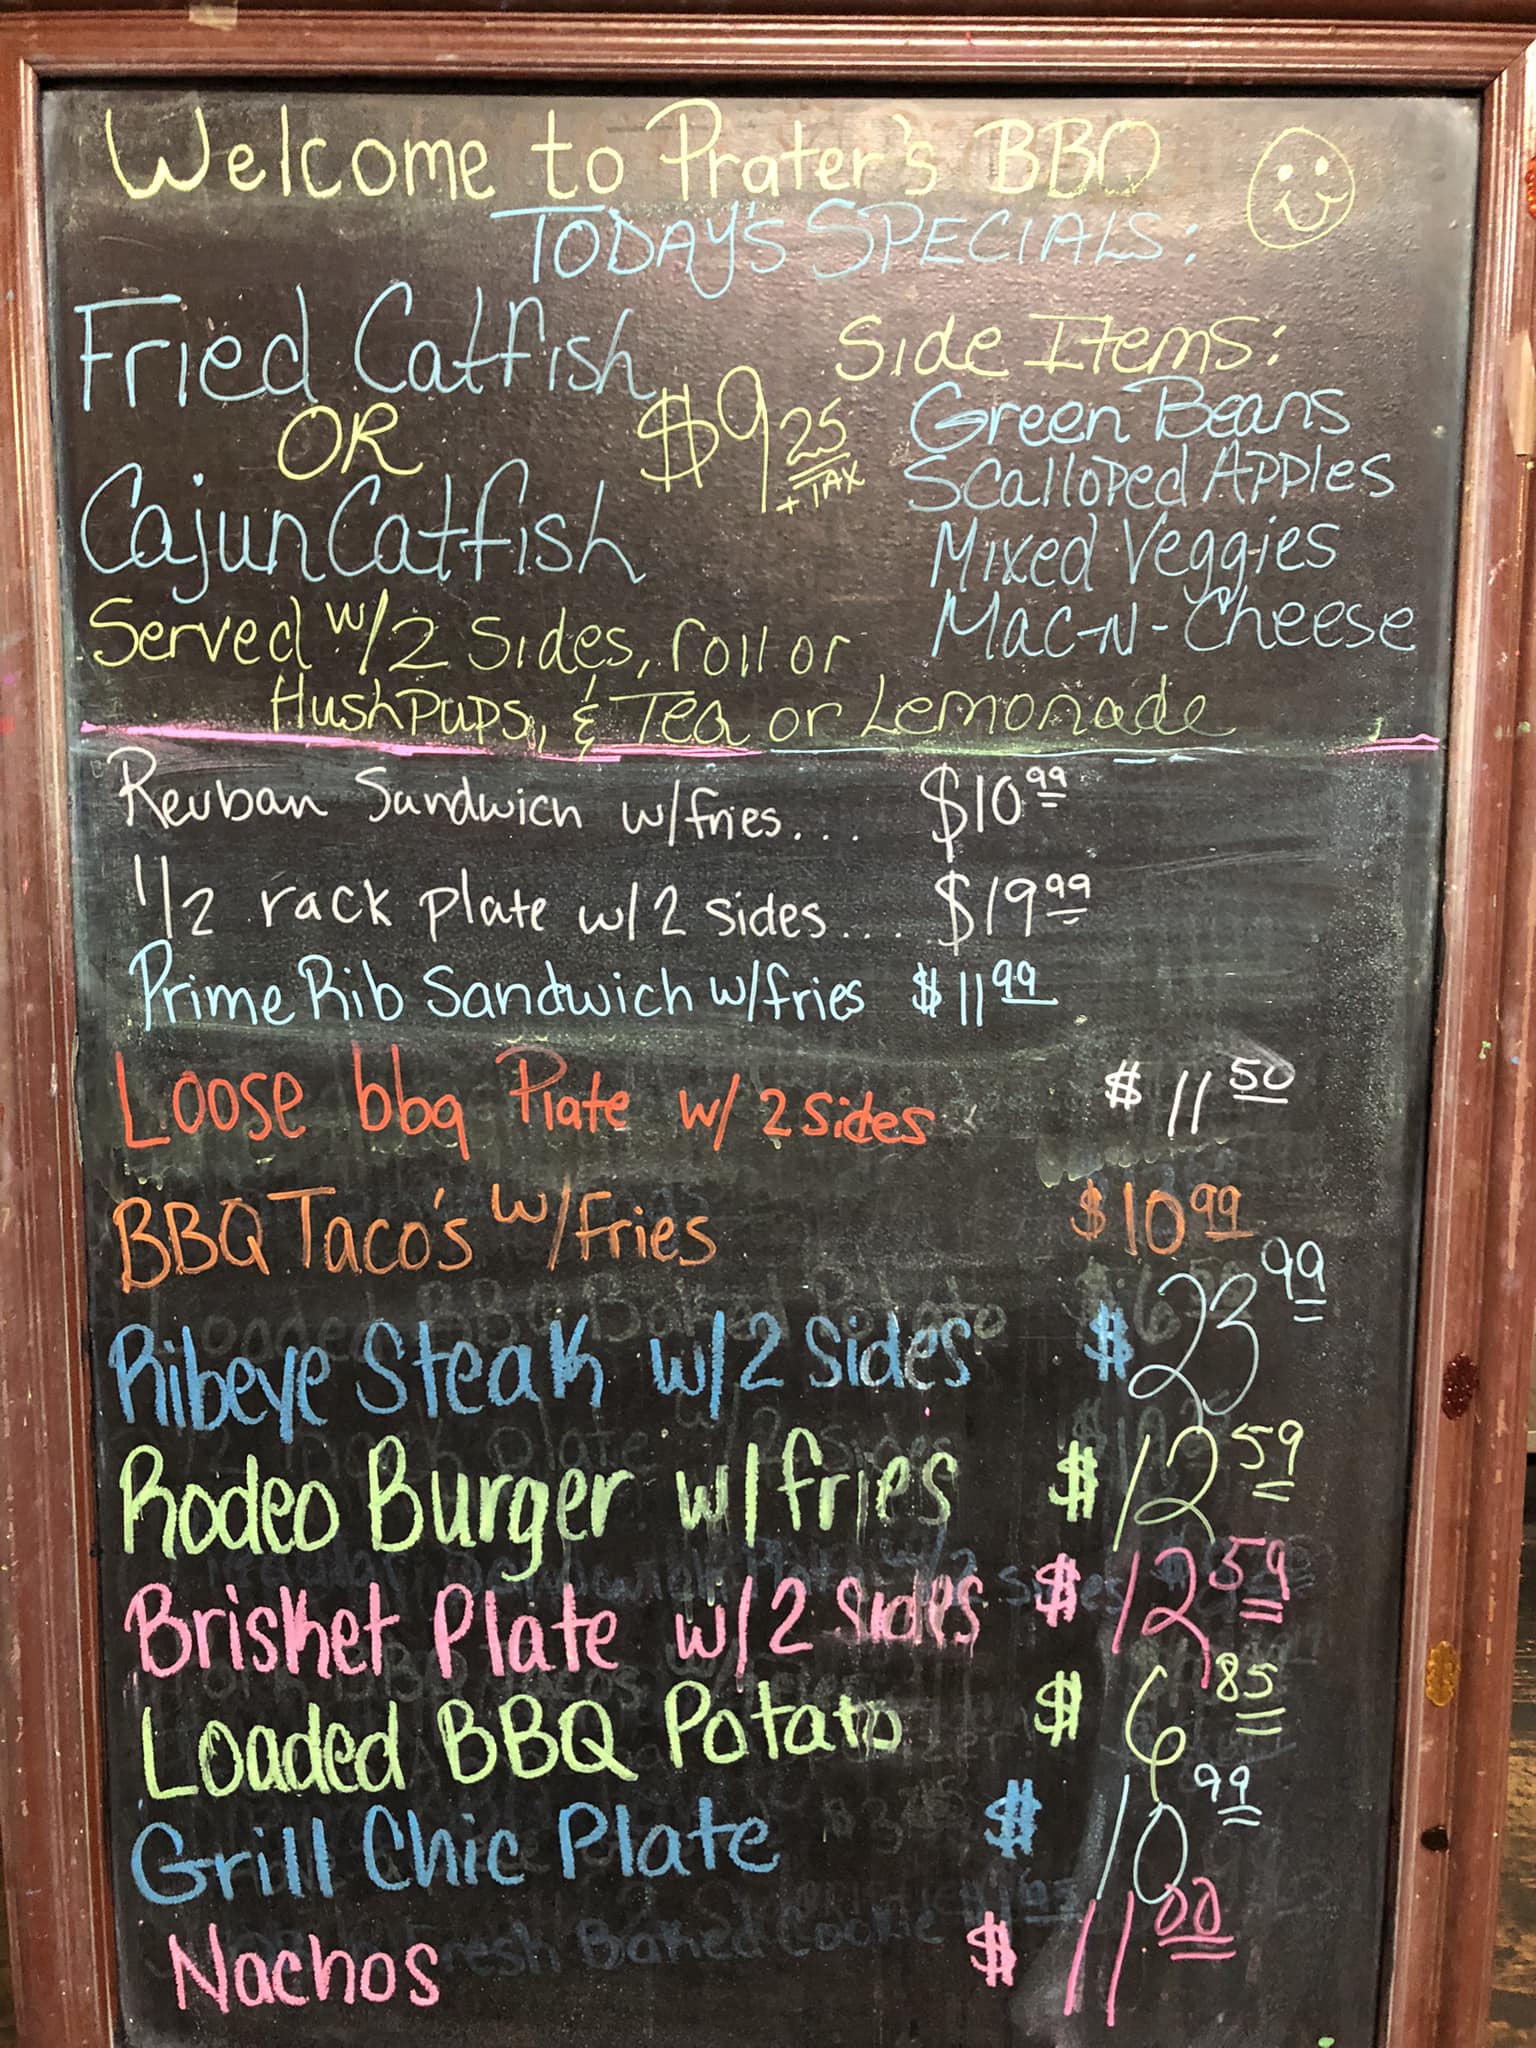 Welcome to Prater's BBQ
TODAY'S SPECIALS:
Fried Catfish
OR
Cajun Catfish
$9.25
+ TAX
Served w/2 Sides, roll or
Hushpups, & Tea or Lemonade
Side Items:
Green Beans
Scalloped Apples
Mixed Veggies
Mac-N-Cheese
Reuban Sandwich w/fries... $10.99
1/2 rack plate w/2 sides.... $19.99
Prime Rib Sandwich w/fries $11.99
Loose bbq Plate w/ 2 Sides $11.50
BBQ Taco's w/Fries $10.99
Ribeye Steak w/2 Sides $23.99
Rodeo Burger w/fries $12.59
Brisket Plate w/2 Sides $12.59
Loaded BBQ Potato $6.85
Grill Chic Plate $10.99
Nachos $11.00